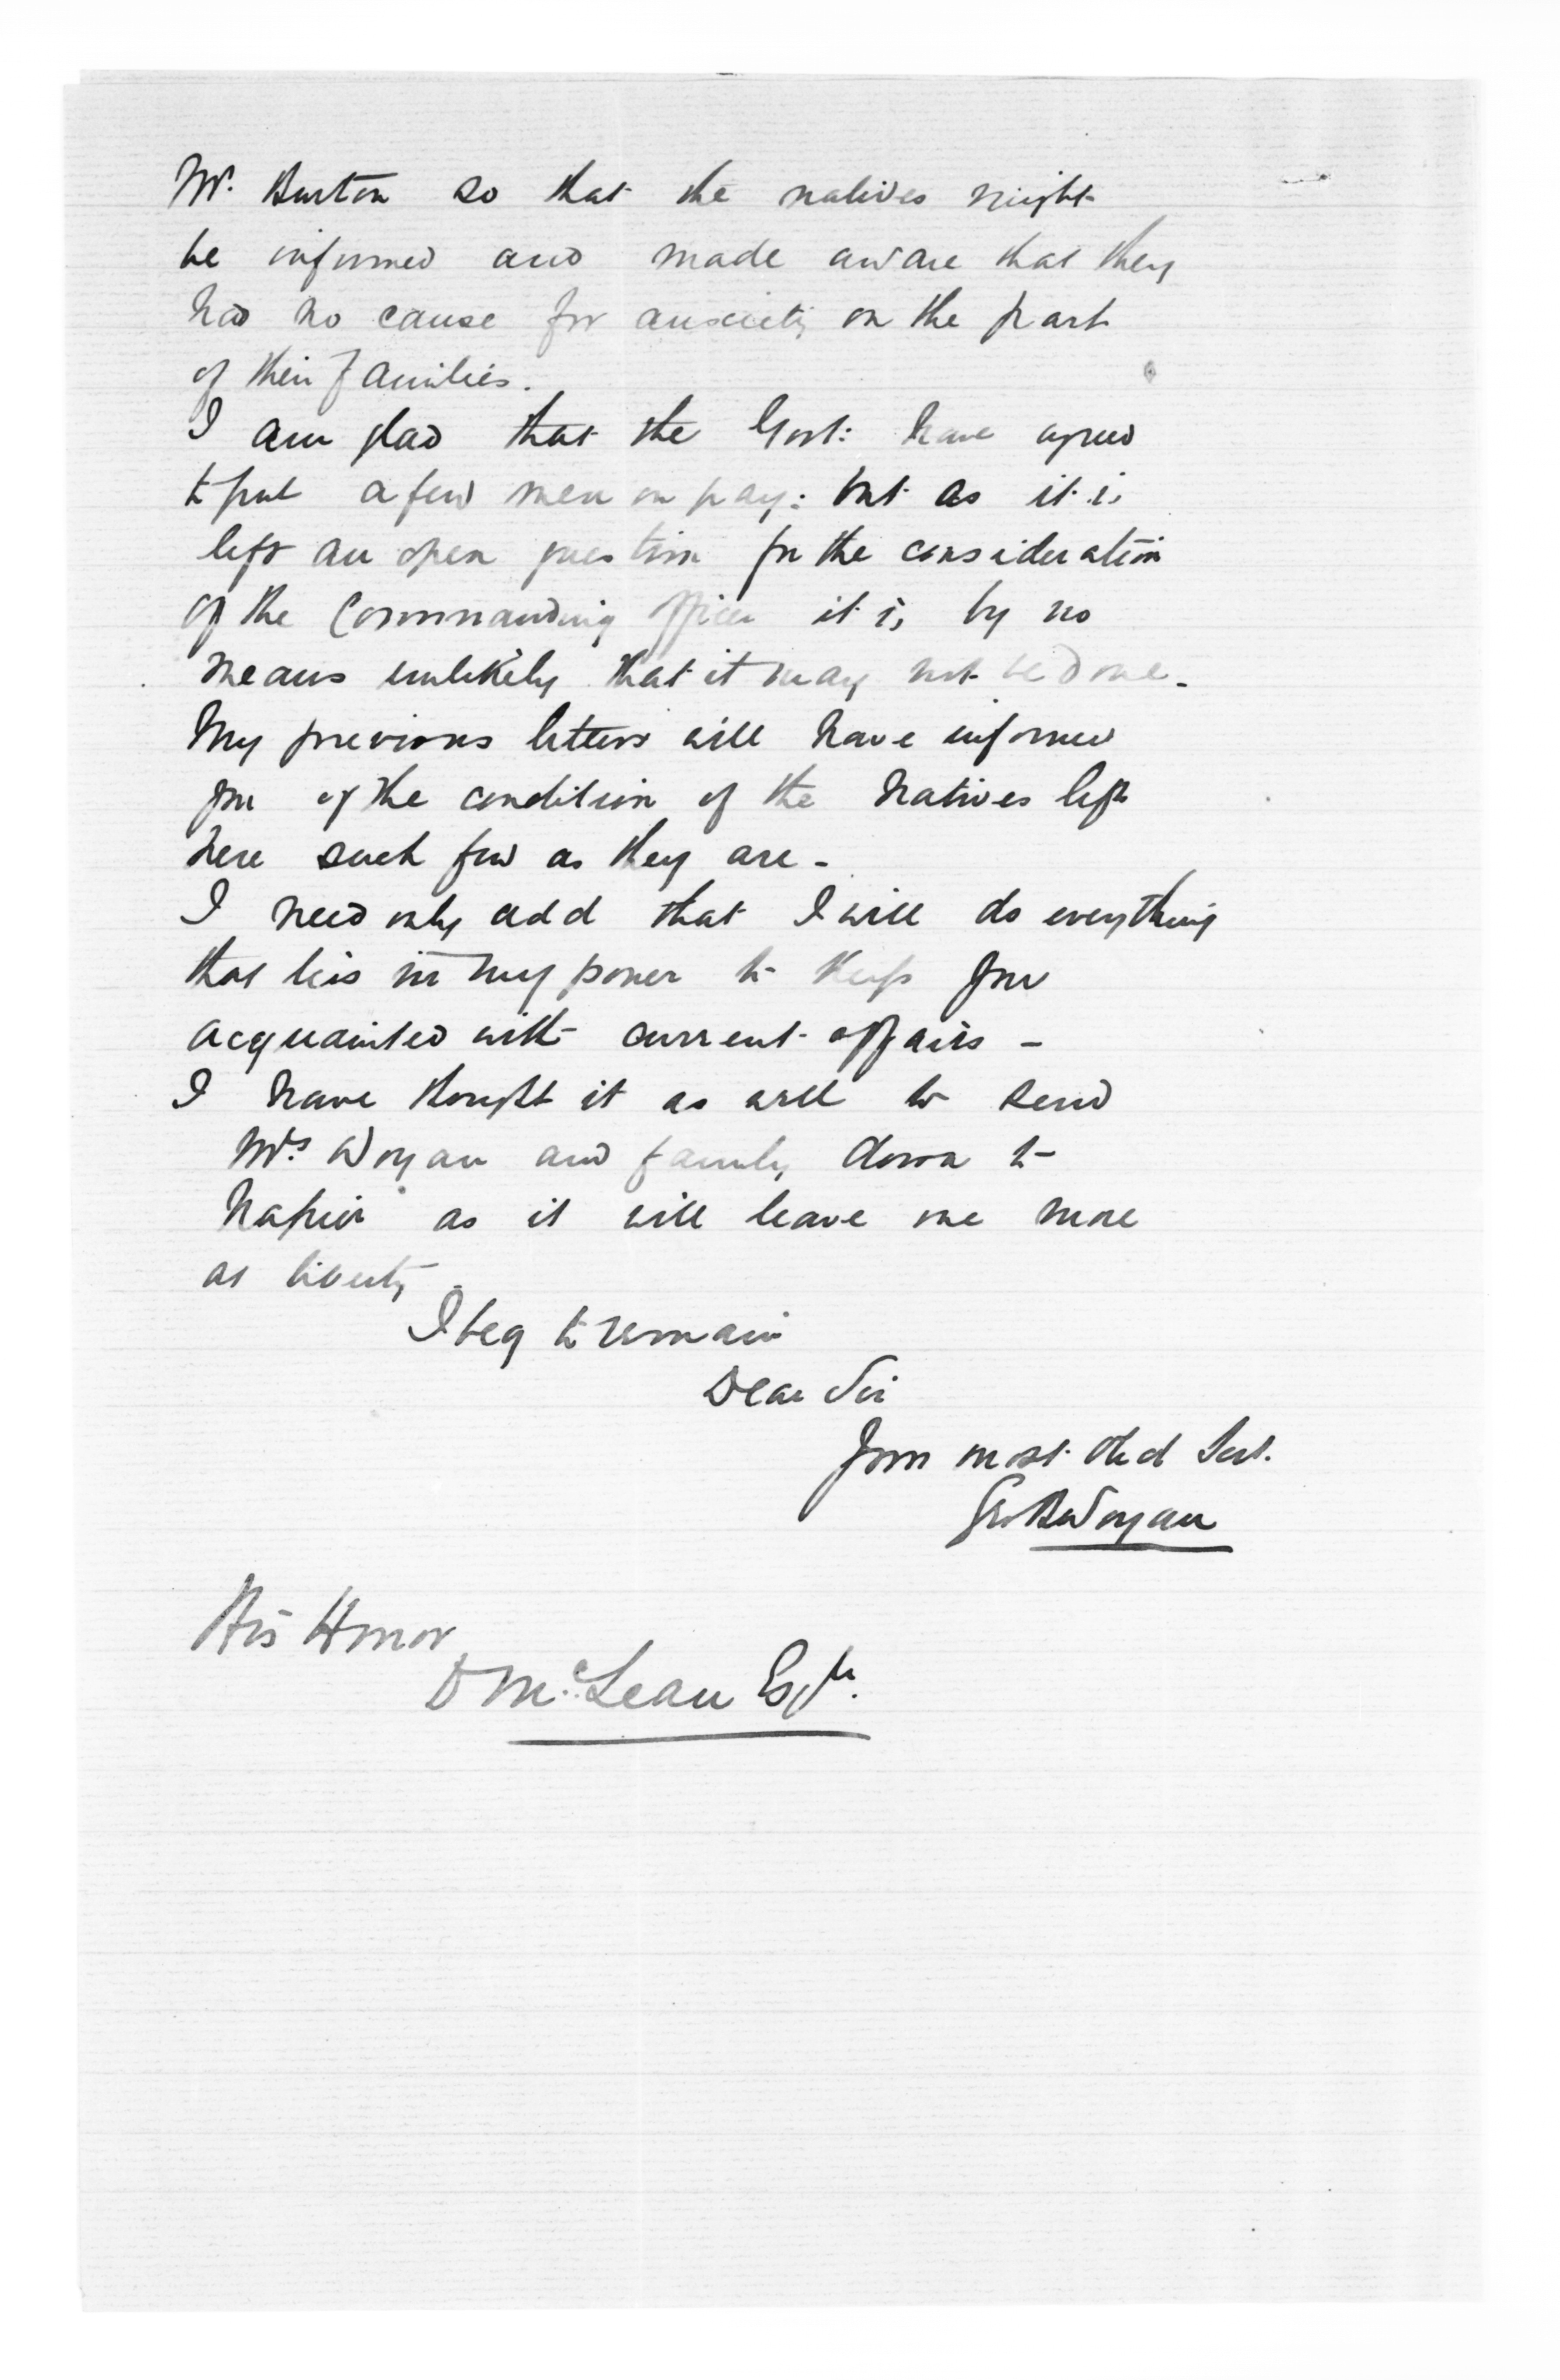 Mr. Burton so that the natives might
be informed and made aware that they
had no cause for anxiety on the part
of their families.
I am glad that the Govt: have agreed
to put a few men on pay: but as it is
left an open question for the consideration
of the Commanding Officer it is by no
means unlikely that it may not be done.
My previous letters will have informed
you of the condition of the Natives left
here such few as they are -
I need only add that I will do everything
that lies in my power to keep you
acquainted with current affairs -
I have thought it as well to send
Mrs. Woyan and family down to
Napier as it will leave me more
at liberty -
I beg to remain
Dear Sir
Your most Obed Sert.
Geo B Woyan
His Honor
D McLean Esqr.